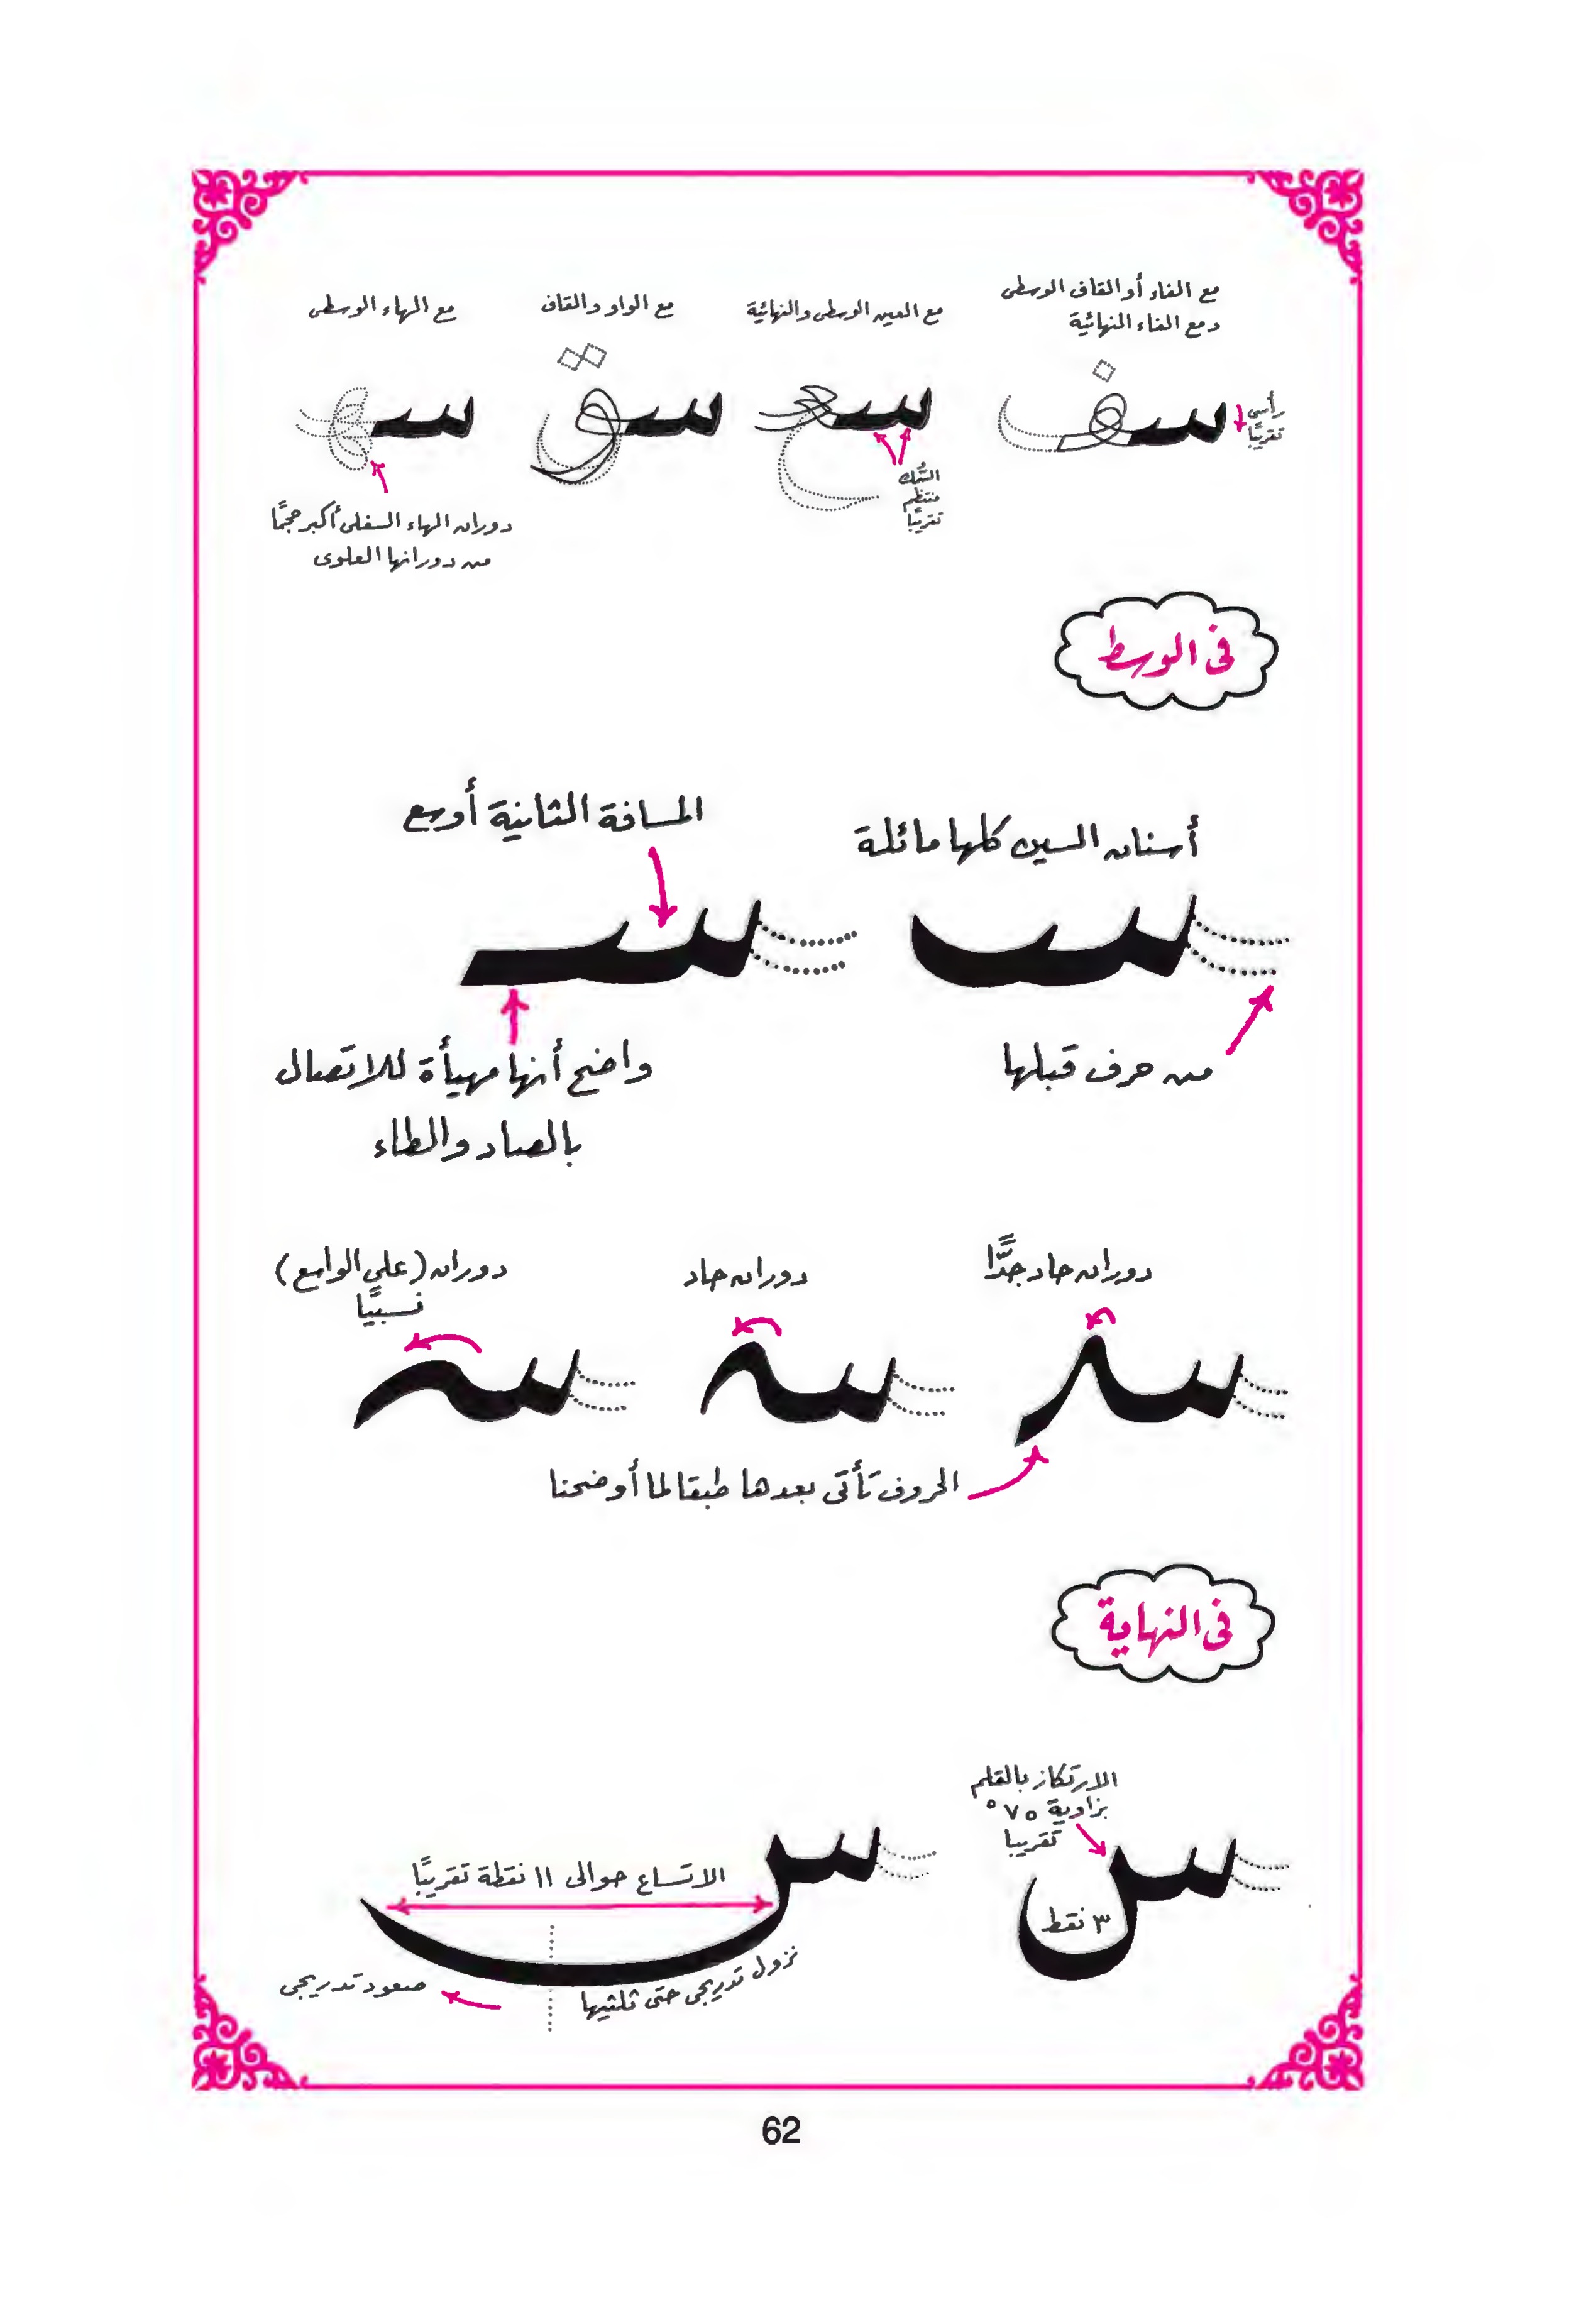 مع الفاء أو القاف الوسطى
ومع الفاء النهائية
مع العين الوسطى والنهائية
مع الواو والقاف
مع الهاء الوسطى
سف
سع
سق
سه
رأسى
تقريبًا
السُّمك
منتظم
تقريبًا
دوران الهاء السفلى أكبر حجمًا
من دورانها العلوى
فى الوسط
أسنان السين كلها مائلة
المسافة الثانية أوسع
من حرف قبلها
واضح أنها مهيأة للاتصال
بالصاد والطاء
دوران حاد جدًّا
دوران حاد
دوران (على الواسع)
نسبيًا
الحروف تأتى بعدها طبقا لما أوضحنا
فى النهاية
الارتكاز بالقلم
بزاوية ٧٥°
تقريبا
س
٣ نقط
س
الاتساع حوالى ١١ نقطة تقريبًا
نزول تدريجى حتى ثلثيها
صعود تدريجى
62